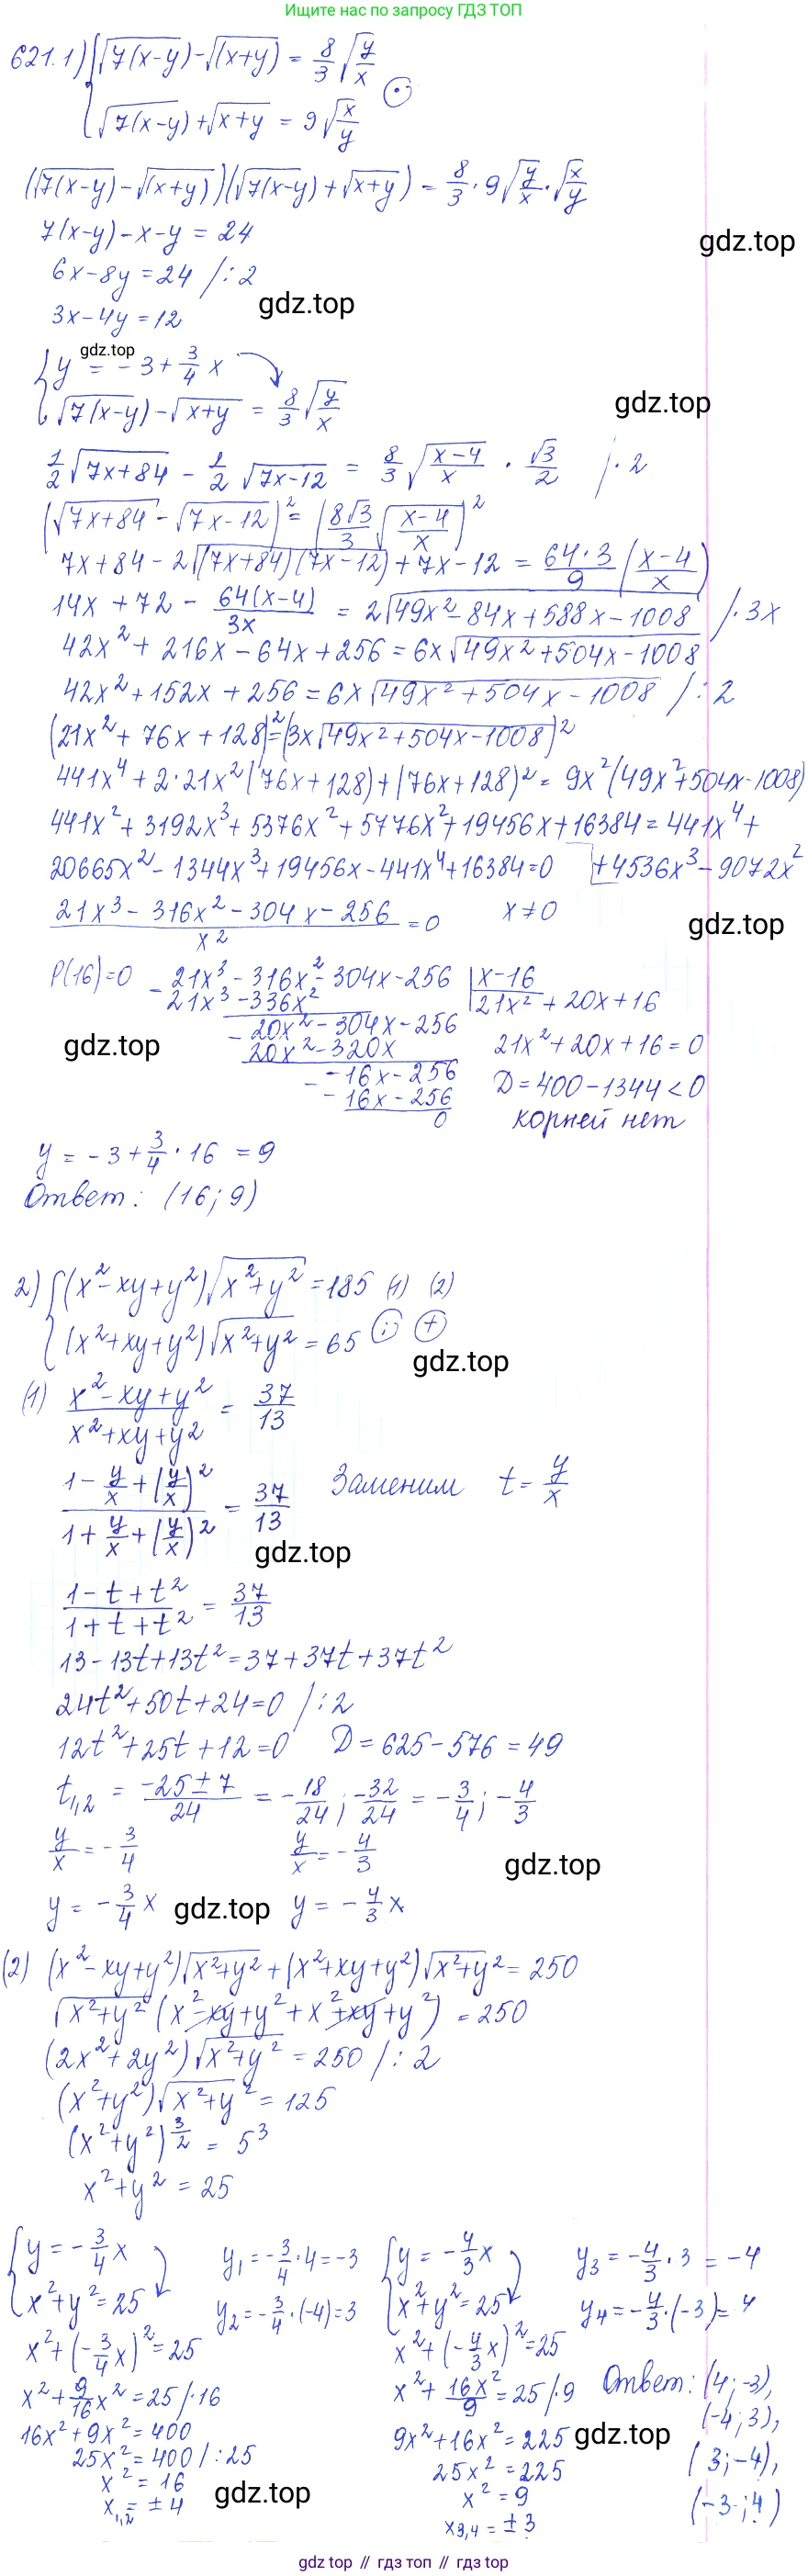 Ищите по запросу ГДЗ ТОП
621. 1) { √(7(x-y)) - √(x+y) = 8/3 √(y/x)
√(7(x-y)) + √(x+y) = 9 √(x/y) ⊙
(√(7(x-y)) - √(x+y))(√(7(x-y)) + √(x+y)) = 8/3 · 9 √(y/x) · √(x/y)
7(x-y) - x - y = 24
gdz.top
6x - 8y = 24 /: 2
gdz.top
3x - 4y = 12
gdz.top
{ y = -3 + 3/4 x
√(7(x-y)) - √(x+y) = 8/3 √(y/x)
gdz.top
1/2 √(7x+84) - 1/2 √(7x-12) = 8/3 √((x-4)/x) · √3/2 /· 2
(√(7x+84) - √(7x-12))² = (8√3/3 √((x-4)/x))²
7x+84 - 2√((7x+84)(7x-12)) + 7x-12 = 64·3/9 ((x-4)/x)
14x + 72 - 64(x-4)/3x = 2√(49x² - 84x + 588x - 1008) /· 3x
42x² + 216x - 64x + 256 = 6x√(49x² + 504x - 1008)
42x² + 152x + 256 = 6x√(49x² + 504x - 1008) /: 2
(21x² + 76x + 128)² = (3x√(49x² + 504x - 1008))²
441x⁴ + 2·21x²(76x+128) + (76x+128)² = 9x²(49x²+504x-1008)
441x² + 3192x³ + 5376x² + 5776x² + 19456x + 16384 = 441x⁴ +
+ 4536x³ - 9072x²
20665x² - 1344x³ + 19456x - 441x⁴ + 16384 = 0
(21x³ - 316x² - 304x - 256)/x² = 0 x ≠ 0
gdz.top
P(16)=0 - 21x³ - 316x² - 304x - 256 | x-16
21x³ - 336x² 21x² + 20x + 16
- 20x² - 304x - 256
gdz.top
20x² - 320x 21x² + 20x + 16 = 0
- -16x - 256 D = 400 - 1344 < 0
- 16x - 256 корней нет
0
y = -3 + 3/4 · 16 = 9
Ответ: (16; 9)
2) { (x² - xy + y²)√(x²+y²) = 185 (1) (2)
(x² + xy + y²)√(x²+y²) = 65 (:) (+)
gdz.top
(1) (x² - xy + y²)/(x² + xy + y²) = 37/13
(1 - y/x + (y/x)²)/(1 + y/x + (y/x)²) = 37/13 Заменим t = y/x
gdz.top
(1 - t + t²)/(1 + t + t²) = 37/13
13 - 13t + 13t² = 37 + 37t + 37t²
24t² + 50t + 24 = 0 /: 2
12t² + 25t + 12 = 0 D = 625 - 576 = 49
t₁,₂ = (-25 ± 7)/24 = -18/24; -32/24 = -3/4; -4/3
y/x = -3/4 y/x = -4/3
gdz.top
y = -3/4 x gdz.top y = -4/3 x
(2) (x² - xy + y²)√(x²+y²) + (x² + xy + y²)√(x²+y²) = 250
√(x²+y²) (x² - xy + y² + x² + xy + y²) = 250
(2x² + 2y²)√(x²+y²) = 250 /: 2
(x² + y²)√(x²+y²) = 125
(x² + y²)^(3/2) = 5³
x² + y² = 25
{ y = -3/4 x y₁ = -3/4 · 4 = -3 { y = -4/3 x y₃ = -4/3 · 3 = -4
x² + y² = 25 y₂ = -3/4 · (-4) = 3 x² + y² = 25 y₄ = -4/3 · (-3) = 4
x² + (-3/4 x)² = 25 x² + (-4/3 x)² = 25
x² + 9/16 x² = 25 /· 16 x² + 16x²/9 = 25 /· 9 Ответ: (4; -3),
16x² + 9x² = 400 9x² + 16x² = 225 gdz.top (-4; 3),
25x² = 400 /: 25 25x² = 225 (3; -4),
x² = 16 gdz.top x² = 9 (-3; 4)
x₁,₂ = ± 4 x₃,₄ = ± 3
gdz top // гдз топ // gdz.top